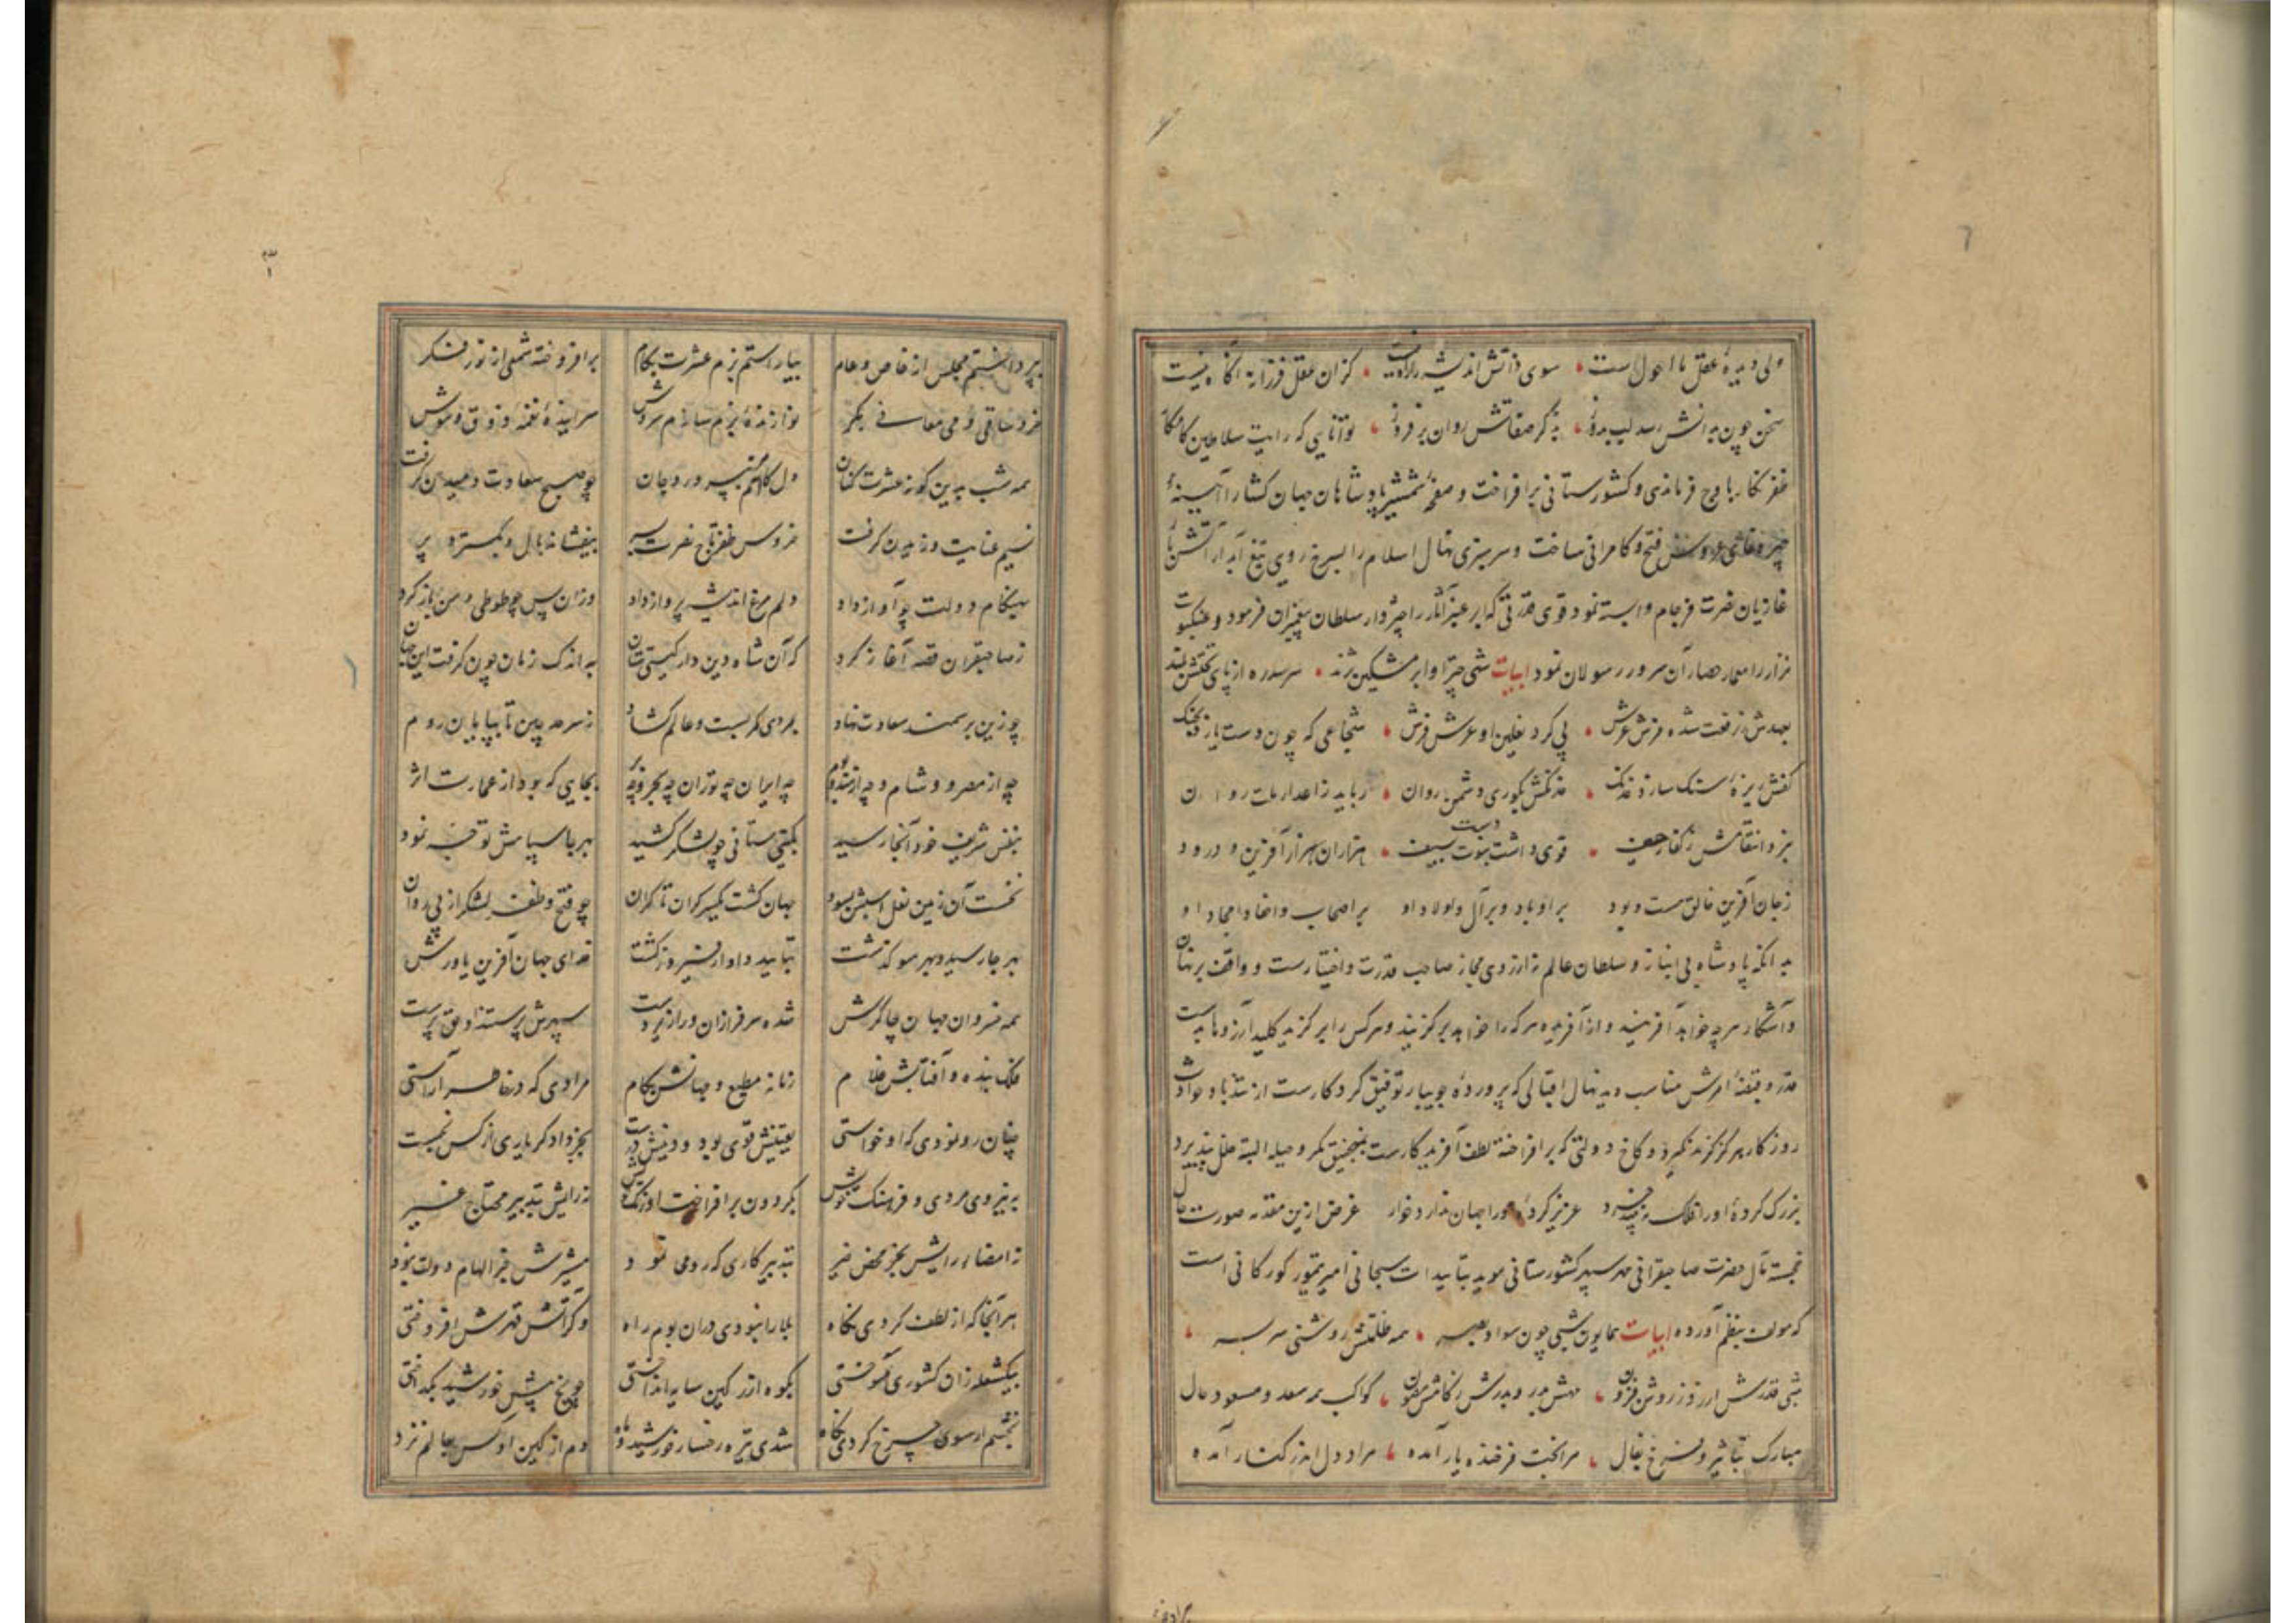 ولی دیدهٔ عقل ما احول است سوی ذاتش اندیشه را راه نیست کزان عقل فرزانه آگاه نیست
سخن چون بدانش رسد لب بدوز به ذکر صفاتش روان برفروز توانایی که رایت سلاطین کامکار
ظفر نگار باوج فرماندهی و کشورستانی برافراخت و صفحهٔ شمشیر پادشاهان جهان کشا را آیینهٔ
چهره نمای عروس فتح و کامرانی ساخت و سرسبزی نهال اسلام را بسرخ رویی تیغ آبدار آتش بار
غازیان نصرت فرجام وابسته نمود قوی قدرتی که ابر عنبر آثار را چتردار سلطان پیغمبران فرمود و عنکبوت
نزار را معمار حصار آن سرور رسولان نمود ابیات شهی چتر او ابر مشکین پرند سر سدره از پای تختش بلند
بعهدش ز رفعت شده فرش عرش پی کرد نعلین او عرش فرش شجاعی که چون دست یازد بجنک
کفش ریزهٔ سنک سازد خدنک خدنکش بکوری دشمن روان رباید ز اعدا
قوی داشت دست هزاران هزار آفرین و درود
ز جان آفرین خالق هست و بود بر او باد و بر آل و اولاد او بر اصحاب و احفاد و امجاد او
بدانکه پادشاه بی انباز و سلطان عالم نه از روی مجاز صاحب قدرت و اختیارست و واقف بر نهان
و آشکار هرچه خواهد آفریند و از آفریده هرکه را خواهد برگزیند و هرکس را برگزید کلید آرزوها بدست
قدر و قبضهٔ امرش مناسب دید نهال اقبالی که پروردهٔ جویبار توفیق کردکارست از تندباد حوادث
روزکار هرکز کزند نکیرد و کاخ دولتی که برافراخته لطف آفریدکارست بمنجنیق مکر و حیله البته خلل نپذیرد
بزرک کردهٔ او را فلک نه بیند خرد عزیز کردهٔ او را جهان ندارد خوار غرض ازین مقدمه صورت حال
خجسته مآل حضرت صاحبقرانی مهر سپهر کشورستانی موید بتاییدات سبحانی امیر تیمور کورکانی است
که مولف بنظم آورده ابیات همایون شبی چون سواد بصر همه ظلمتش روشنی سربسر
شبی قدرش از روز روشن فزون مهش بدر و بدرش ز نقصان مصون کواکب همه سعد و مسعود حال
مبارک بتاثیر و فرخ بفال مرا بخت فرخنده یار آمده مراد دل اندر کنار آمده
بپرداختم مجلس از خاص و عام بیاراستم بزم عشرت بکام برافروخته شمعی از نور فکر
خرد ساقی و می معانی بکر نوازندهٔ بزم سازم سروش سراینده نغمه و ذوق و هوش
همه شب بدین کونه عشرت کنان دل کامران همنشین پرورد جان چو صبح سعادت دمیدن کرفت
نسیم عنایت وزیدن کرفت خروس ظفر تاج نصرت بسر بیفشاند بال و بکسترد پر
بهنکام دولت چو آواز داد دلم مرغ اندیشه پرواز داد وزان پس چو طوطی دهن باز کرد
ز صاحبقران قصه آغاز کرد که آن شاه دین دار کیتی ستان به اندک زمان چون کرفت این جهان
چو زین بر سمند سعادت نهاد بمردی کمر بست و عالم کشاد ز سرحد چین تا بپایان روم
چه از مصر و شام و چه از هند و بوم چه ایران چه توران چه بحر و چه بر بجایی که بود از عمارت اثر
بنفس شریف خود آنجا رسید بکیتی ستانی چو لشکر کشید بهر جا سپاهش توجه نمود
نخست آن زمین نعل اسبش بسود جهان کشت یکسر کران تا کران چو فتح و ظفر لشکر از پی روان
بهر جا رسید و بهر سو کذشت بتایید دادار فیروز کشت خدای جهان آفرین یاورش
همه خسروان جهان چاکرش شده سرفرازان درازیر دست سپهرش پرستنده او حق پرست
فلک بنده و آفتابش غلام زمانه مطیع و جهانش بکام مرادی که در خاطر آراستی
چنان رو نمودی که او خواستی یقینش قوی بود و دینش درست بجز داد کر یاری از کس نجست
به نیروی مردی و فرهنک و هوش بکردون برافراخت نه رایش بتدبیر محتاج غیر
نه امضاء رایش بجز محض خیر بتدبیر کاری که رو می نمود مشیرش جز الهام دولت نبود
هر آنجا که از لطف کردی نکاه بلا را نبودی دران بوم راه وکر آتش قهرش افروختی
بیک شعله زان کشوری سوختی بکوه ار ز کین سایه انداختی چو یخ پیش خورشید بکداختی
بخشم ار سوی چرخ کردی نکاه شدی تیره رخسار خورشید و ماه دم از کین او کس بعالم نزد